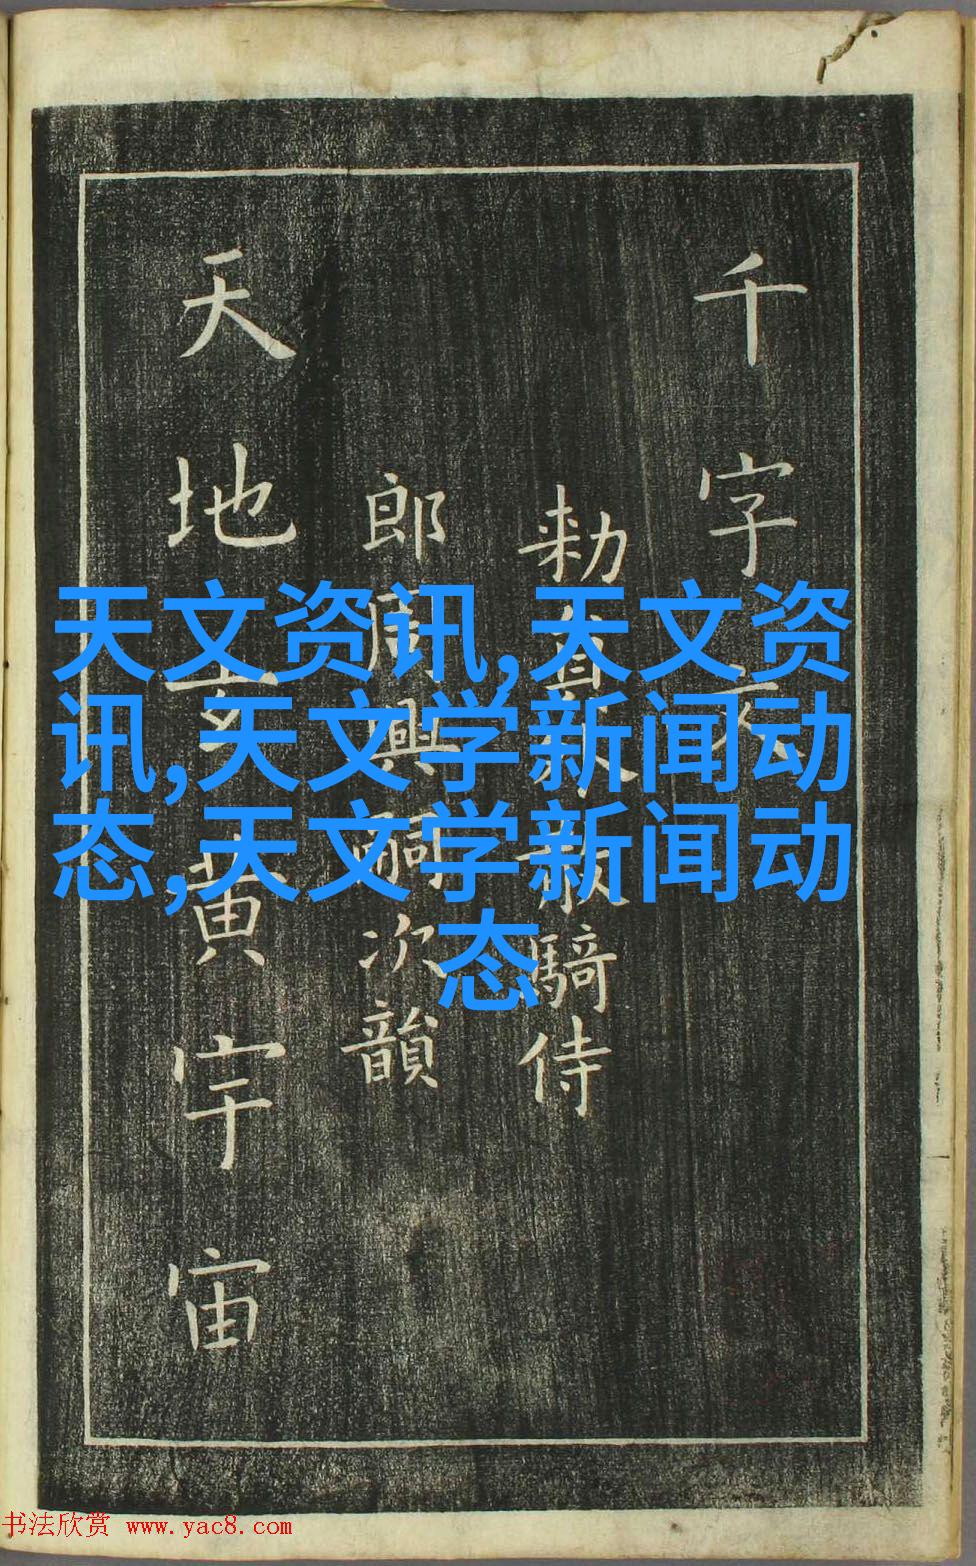 千字文
勑員外散騎侍
郎周興嗣次韻
天地玄黄宇宙
天文资讯,天文资
讯,天文学新闻动
态,天文学新闻动
态
书法欣赏 www.yac8.com